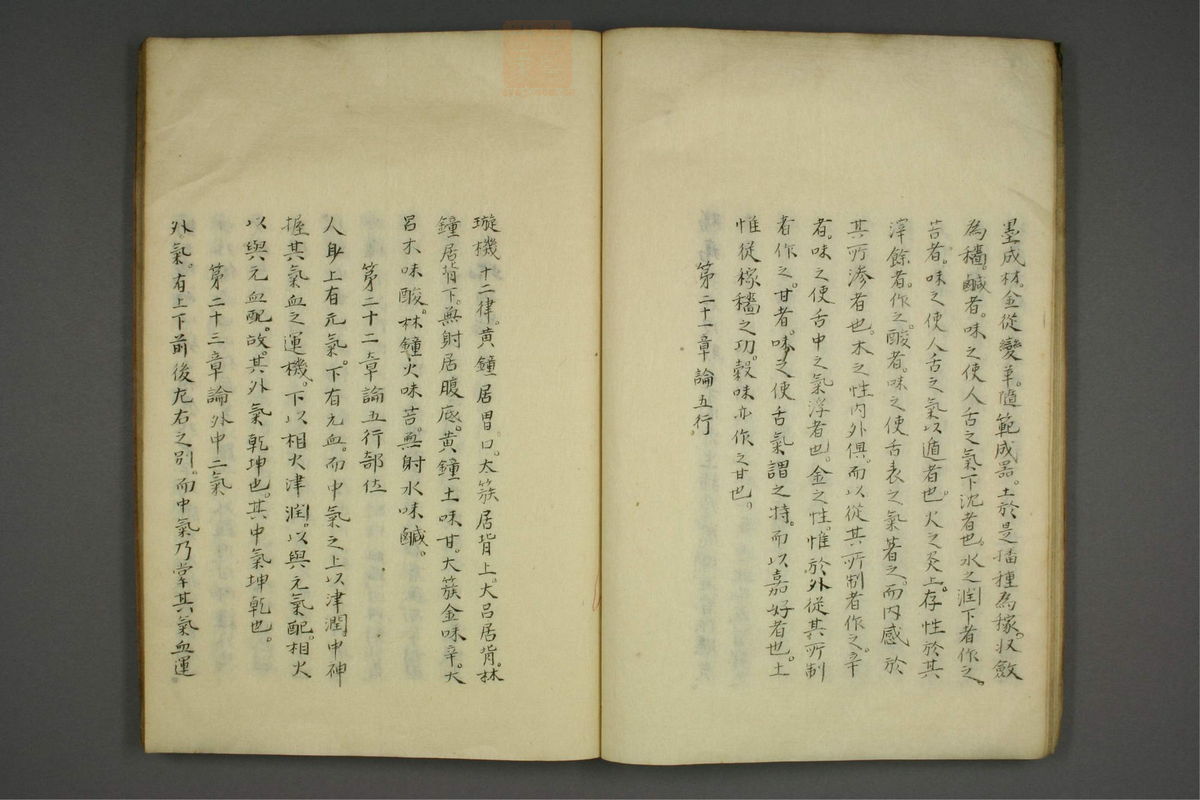 墨成材。金從變革。隨範成器。土於是播種為稼。収斂
為穡。鹹者。味之使人舌之氣下沈者也。水之潤下者作之。
苦者。味之使人舌之氣以遁者也。火之炎上。存性於其
滓餘者。作之。酸者。味之使舌表之氣著之。而内感於
其所滲者也。木之性内外俱。而以從其所制者作之。辛
者。味之使舌中之氣浮者也。金之性。惟於外從其所制
者作之。甘者。味之使舌氣謂之特。而以嘉好者也。土
惟從稼穡之功。穀味亦作之甘也。
第二十一章論五行。
璇機十二律。黄鐘居胃口。太簇居背上。大呂居背。林
鐘居背下。無射居腹底。黄鐘土味甘。大簇金味辛。大
呂木味酸。林鐘火味苦。無射水味鹹。
第二十二章論五行部位
人身上有元氣。下有元血。而中氣之上以津潤。中神
握其氣血之運機。下以相火津潤。以與元氣配。相火
以與元血配。故。其外氣乾坤也。其中氣坤乾也。
第二十三章論外中二氣
外氣。有上下前後左右之別。而中氣乃掌其氣血運